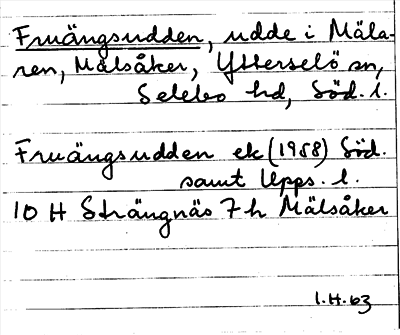 Fruängsudden, udde i Mäla-
ren, Mälsåker, Ytterselö sn,
Selebo hd, Söd. l.
Fruängsudden ek (1958) Söd.
samt Upps. l.
10 H Strängnäs 7 h Mälsåker
I.H. 63